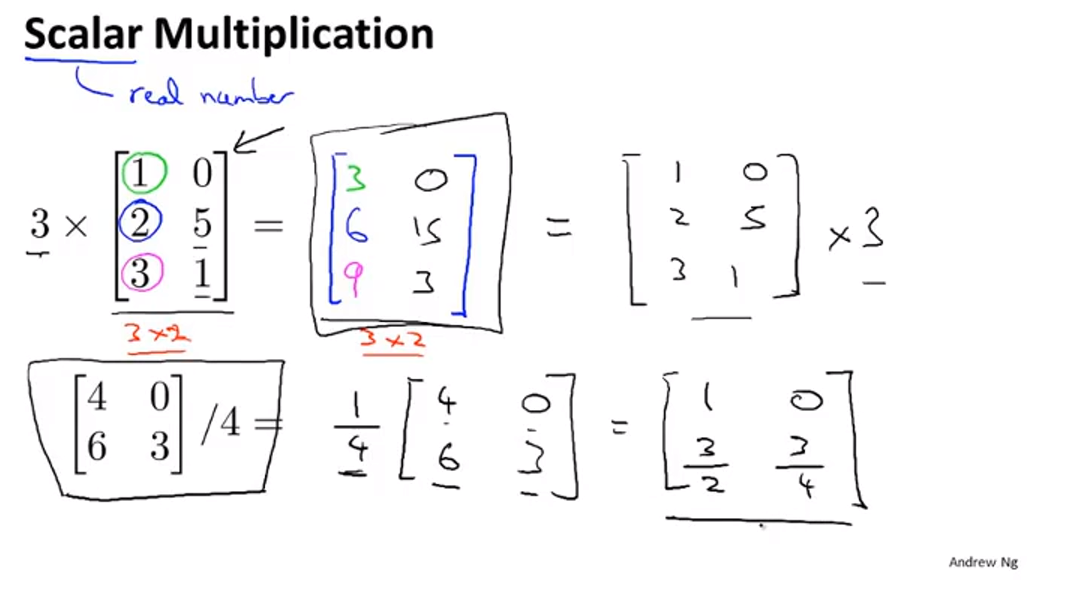 Scalar Multiplication
real number
3 × [1 0; 2 5; 3 1] = [3 0; 6 15; 9 3] = [1 0; 2 5; 3 1] × 3
3 × 2 3 × 2
[4 0; 6 3] /4 = 1/4 [4 0; 6 3] = [1 0; 3/2 3/4]
Andrew Ng